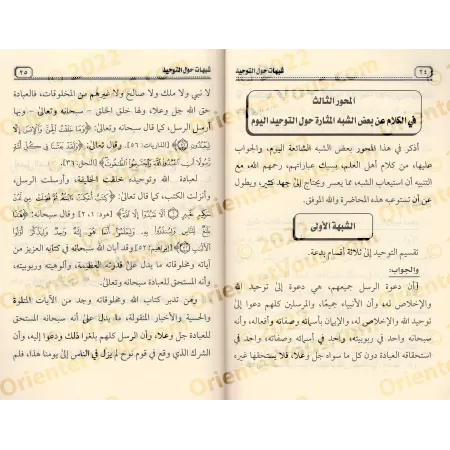 ٢٤
شبهات حول التوحيد
المحور الثالث
في الكلام عن بعض الشبه المثارة حول التوحيد اليوم
أذكر في هذا المحور بعض الشبه الشائعة اليوم، والجواب
عليها، من كلام أهل العلم، بسبك عباراتهم، رحمهم الله، مع
التنبيه أن استيعاب الشبه، مما يعسر ويحتاج إلى جهد كثير، ويطول
عن أن تستوعبه هذه المحاضرة والله الموفق.
الشبهة الأولى
تقسيم التوحيد إلى ثلاثة أقسام بدعة.
والجواب:
(أن دعوة الرسل جميعهم، هي دعوة إلى توحيد الله
والإخلاص له، وأن الأنبياء جميعًا، والمرسلين كلهم دعوا إلى
توحيد الله والإخلاص له، والإيمان بأسمائه وصفاته وأفعاله، وأنه
سبحانه واحد في ربوبيته، واحد في أسمائه وصفاته، واحد في
استحقاقه العبادة دون كل ما سواه جل وعلا، فلا يستحقها غيره
شبهات حول التوحيد
٢٥
لا نبي ولا ملك ولا صالح ولا غيرهم من المخلوقات، فالعبادة
حق الله جل وعلا، ولها خلق الخلق - سبحانه وتعالى - وبها
أرسل الرسل، كما قال سبحانه وتعالى: ﴿وَمَا خَلَقْتُ الْجِنَّ وَالْإِنسَ إِلَّا
لِيَعْبُدُونِ﴾ [الذاريات: ٥٦]. وقال تعالى: ﴿وَلَقَدْ بَعَثْنَا فِي كُلِّ أُمَّةٍ
رَّسُولًا أَنِ اعْبُدُوا اللَّهَ وَاجْتَنِبُوا الطَّاغُوتَ﴾ [النحل: ٣٦].
لعبادة الله وتوحيده خلقت الخليقة، وأرسلت الرسل،
وأنزلت الكتب، كما قال تعالى: ﴿كِتَابٌ أُحْكِمَتْ آيَاتُهُ ثُمَّ فُصِّلَتْ مِن لَّدُنْ
حَكِيمٍ خَبِيرٍ أَلَّا تَعْبُدُوا إِلَّا اللَّهَ﴾ [هود: ١، ٢] وقال سبحانه: ﴿هَذَا
بَلَاغٌ لِّلنَّاسِ وَلِيُنذَرُوا بِهِ وَلِيَعْلَمُوا أَنَّمَا هُوَ إِلَهٌ وَاحِدٌ وَلِيَذَّكَّرَ أُولُو
الْأَلْبَابِ﴾ [إبراهيم: ٥٢] وقد أبان الله سبحانه في كتابه العزيز من
آياته ومخلوقاته ما يدل على قدرته العظيمة، وألوهيته وربوبيته،
وأنه المستحق للعبادة سبحانه وتعالى.
ومن تدبر كتاب الله ومخلوقاته وجد من الآيات المتلوة
والحسية والأخبار المنقولة، ما يدل على أنه سبحانه المستحق
للعبادة جل وعلا، وأن الرسل كلهم بلغوا ذلك ودعوا إليه، وأن
الشرك الذي وقع في قوم نوح لم يزل في الناس إلى يومنا هذا، فلم
OrientalVout.com © 2022